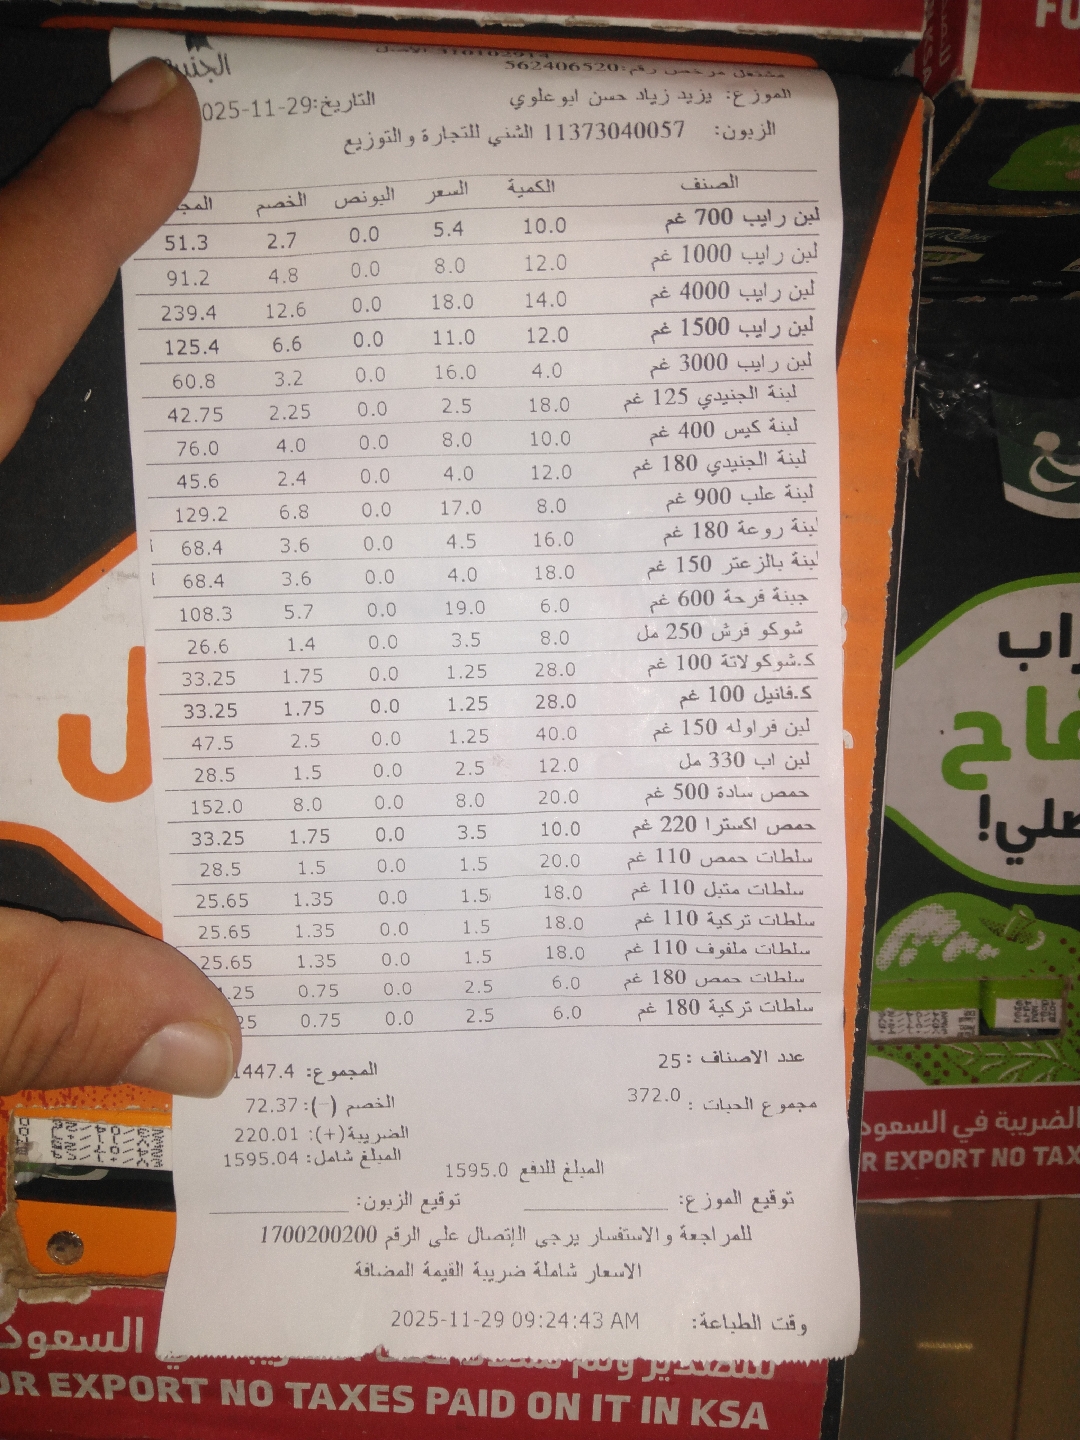 الجنيدي
مشتغل مرخص رقم:562406520
الموزع: يزيد زياد حسن ابو علوي التاريخ:025-11-29
الزبون: 11373040057 الشني للتجارة والتوزيع
الصنف الكمية السعر البونص الخصم المج
لبن رايب 700 غم 10.0 5.4 0.0 2.7 51.3
لبن رايب 1000 غم 12.0 8.0 0.0 4.8 91.2
لبن رايب 4000 غم 14.0 18.0 0.0 12.6 239.4
لبن رايب 1500 غم 12.0 11.0 0.0 6.6 125.4
لبن رايب 3000 غم 4.0 16.0 0.0 3.2 60.8
لبنة الجنيدي 125 غم 18.0 2.5 0.0 2.25 42.75
لبنة كيس 400 غم 10.0 8.0 0.0 4.0 76.0
لبنة الجنيدي 180 غم 12.0 4.0 0.0 2.4 45.6
لبنة علب 900 غم 8.0 17.0 0.0 6.8 129.2
لبنة روعة 180 غم 16.0 4.5 0.0 3.6 68.4
لبنة بالزعتر 150 غم 18.0 4.0 0.0 3.6 68.4
جبنة فرحة 600 غم 6.0 19.0 0.0 5.7 108.3
شوكو فرش 250 مل 8.0 3.5 0.0 1.4 26.6
ك.شوكولاتة 100 غم 28.0 1.25 0.0 1.75 33.25
ك.فانيل 100 غم 28.0 1.25 0.0 1.75 33.25
لبن فراوله 150 غم 40.0 1.25 0.0 2.5 47.5
لبن اب 330 مل 12.0 2.5 0.0 1.5 28.5
حمص سادة 500 غم 20.0 8.0 0.0 8.0 152.0
حمص اكسترا 220 غم 10.0 3.5 0.0 1.75 33.25
سلطات حمص 110 غم 20.0 1.5 0.0 1.5 28.5
سلطات متبل 110 غم 18.0 1.5 0.0 1.35 25.65
سلطات تركية 110 غم 18.0 1.5 0.0 1.35 25.65
سلطات ملفوف 110 غم 18.0 1.5 0.0 1.35 25.65
سلطات حمص 180 غم 6.0 2.5 0.0 0.75 .25
سلطات تركية 180 غم 6.0 2.5 0.0 0.75 25
عدد الاصناف : 25 المجموع: 1447.4
مجموع الحبات : 372.0 الخصم (-): 72.37
الضريبة(+): 220.01
المبلغ شامل: 1595.04
المبلغ للدفع 1595.0
توقيع الموزع: توقيع الزبون:
للمراجعة والاستفسار يرجى الإتصال على الرقم 1700200200
الاسعار شاملة ضريبة القيمة المضافة
وقت الطباعة: 2025-11-29 09:24:43 AM
السعود
OR EXPORT NO TAXES PAID ON IT IN KSA
FO
راب
فاح
صلي!
الضريبة في السعود
R EXPORT NO TAX